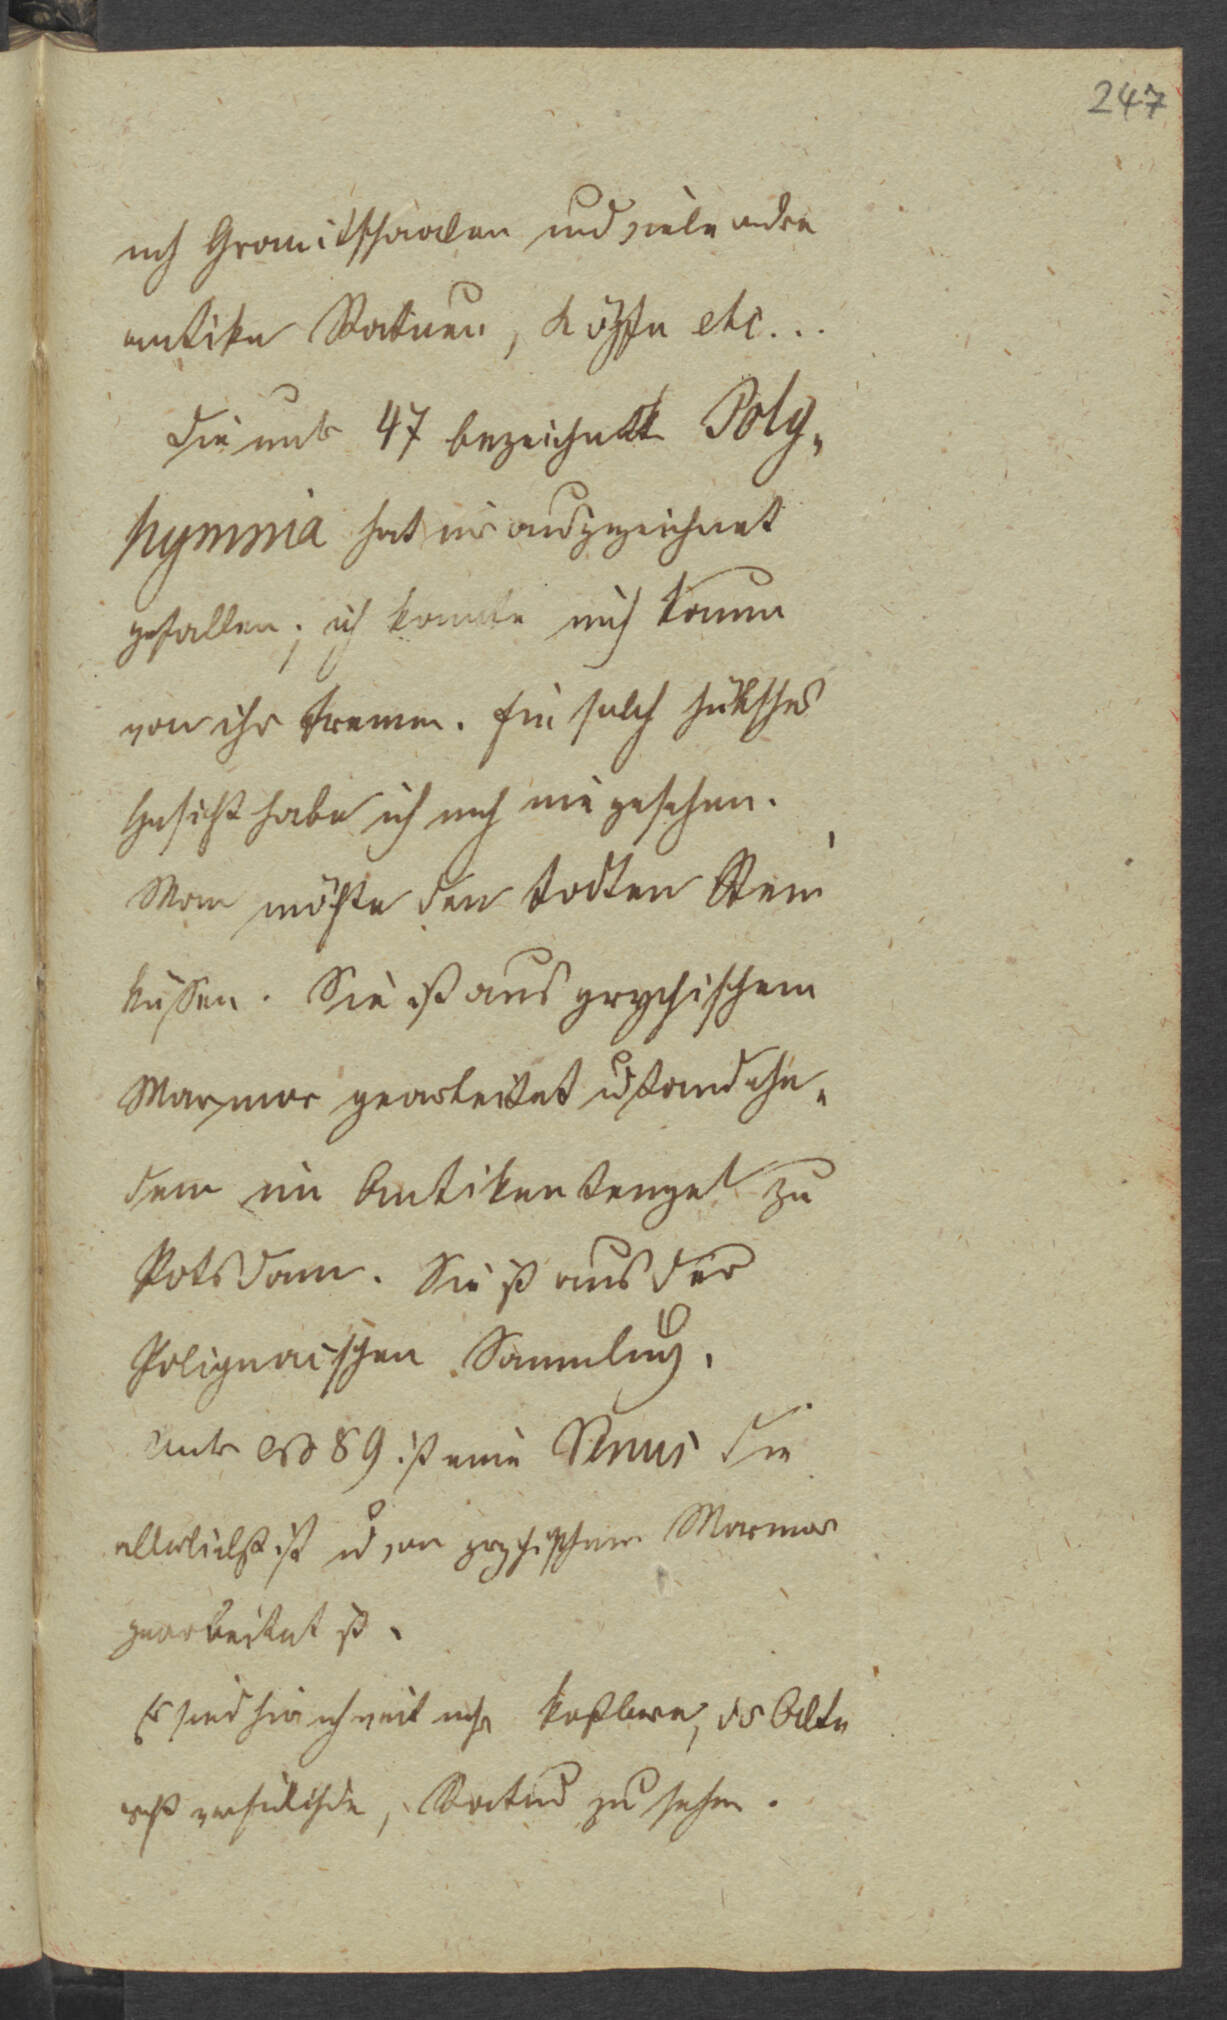 247
noch Granitschaalen und viele andre
antike Statuen, Köpfe etc...
Die unter 47 bezeichnete Poly-
hymnia hat mir ausgezeichnet
gefallen; ich konnte mich kaum
von ihr trennen. Ein solch hübsches
Gesicht habe ich noch nie gesehen.
Man möchte den todten Stein
küssen. Sie ist aus grychischem
Marmor gearbeitet u stand ehe-
dem im Antikentempel zu
Potsdam. Sie ist aus der
Polignacschen Sammlung.
Unter No 89 ist eine Venus die
allerliebst ist u von grychischem Marmor
gearbeitet ist.
Es sind hier noch weit mehr kostbare, das Alte
Statuen zu sehen.